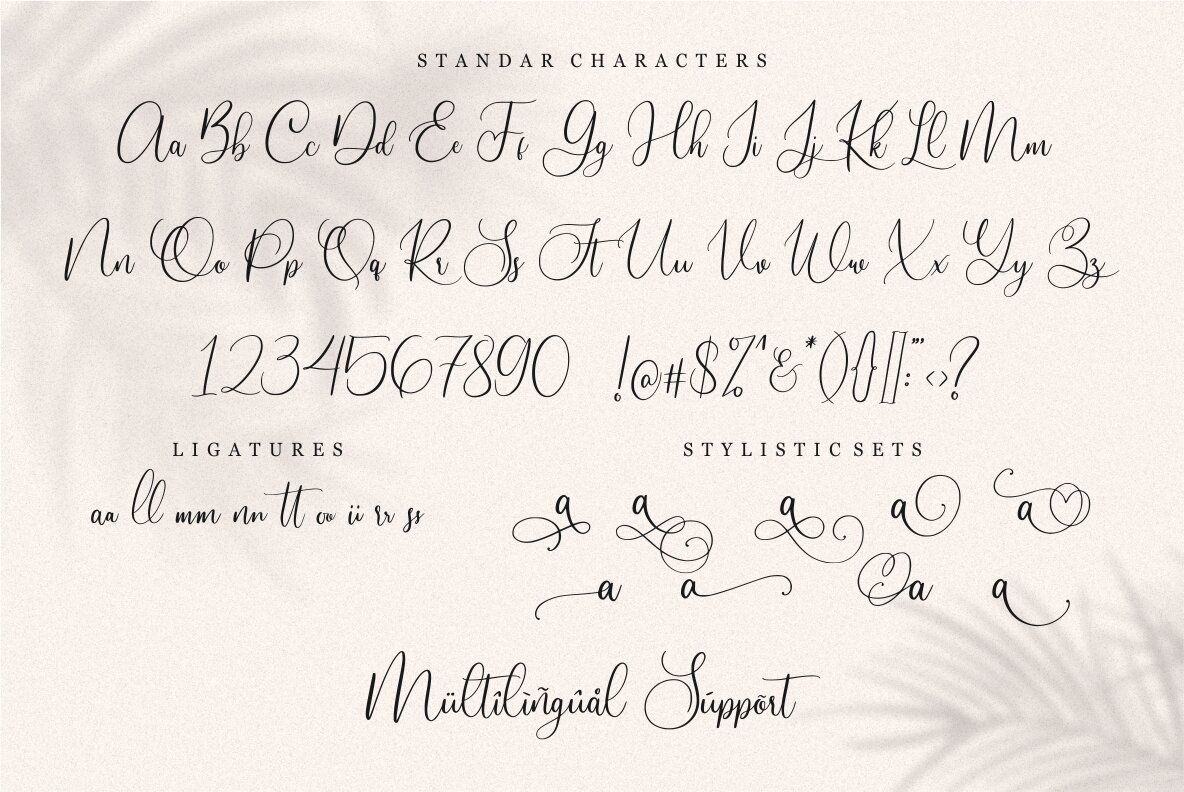 STANDAR CHARACTERS
Aa Bb Cc Dd Ee Ff Gg Hh Ii Jj Kk Ll Mm
Nn Oo Pp Qq Rr Ss Tt Uu Vv Ww Xx Yy Zz
1234567890 !@#$%^&*(){}[]:"'<>?
LIGATURES
aa ll mm nn tt oo ii rr ss
STYLISTIC SETS
a a a a a
a a a a
Mültîlìñgûål Súppõrt